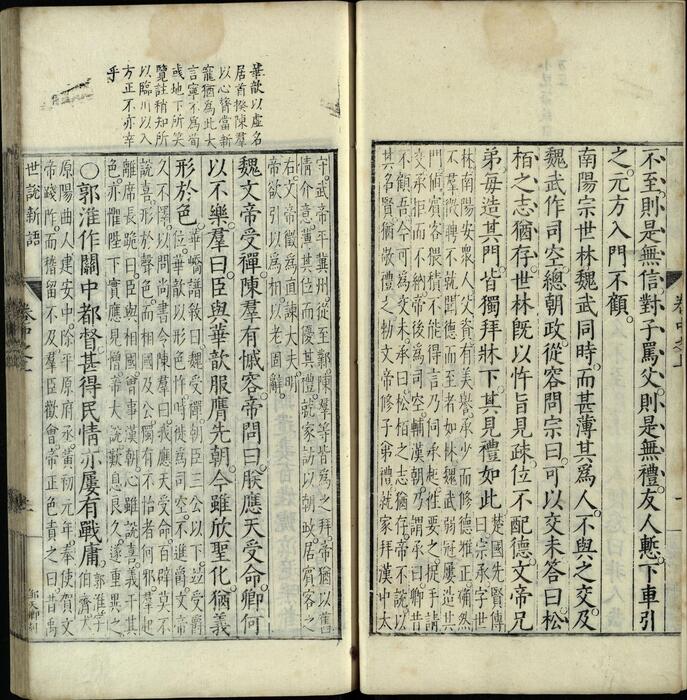 不至則是無信對子罵父則是無禮友人慙下車引
之元方入門不顧
南陽宗世林魏武同時而甚薄其爲人不與之交及
魏武作司空總朝政從容問宗曰可以交未答曰松
栢之志猶存世林旣以忤旨見疎位不配德文帝兄
弟每造其門皆獨拜牀下其見禮如此
楚國先賢傳
曰宗承字世
林南陽安衆人父資有美譽承少而修德雅正確然
不羣徵聘不就聞德而至者如林魏武弱冠屢造其
門値賓客猥積不能得言乃伺承起徃要之捉手請
交承拒而不納帝後爲司空輔漢朝乃謂承曰卿昔
不顧吾今可爲交未承曰松栢之志猶存帝不說以
其名賢猶敬禮之勑文帝修子弟禮就家拜漢中太
卷中之上
華歆以虛名
居首揆陳羣
以心膂當新
寵猶爲此大
言寧不爲荀
彧地下所笑
覽註稍知所
以臨川以入
方正不亦幸
乎
守武帝平冀州從至鄴陳羣等皆爲之拜帝猶以舊
情介意薄其位而優其禮就家訪以朝政居賓客之
右文帝徵爲直諫大夫明
帝欲引以爲相以老固辭
魏文帝受禪陳羣有慽容帝問曰朕應天受命卿何
以不樂羣曰臣與華歆服膺先朝今雖欣聖化猶義
形於色
華嶠譜敘曰魏受禪朝臣三公以下竝受爵
位華歆以形色忤時徙爲司空不進爵文帝
久不懌以問尚書令陳羣曰我應天受命百辟莫不
說喜形於聲色而相國及公獨有不怡者何邪羣起
離席長跪曰臣與相國曾事漢朝心雖說喜義干其
色亦懼陛下實應見憎帝大說歎息良久遂重異之
○郭淮作關中都督甚得民情亦屢有戰庸
郭淮字
伯濟太
原陽曲人建安中除平原府丞黃初元年奉使賀文
帝踐阼而稽留不及羣臣歡會帝正色責之曰昔禹
世說新語
卷中之上